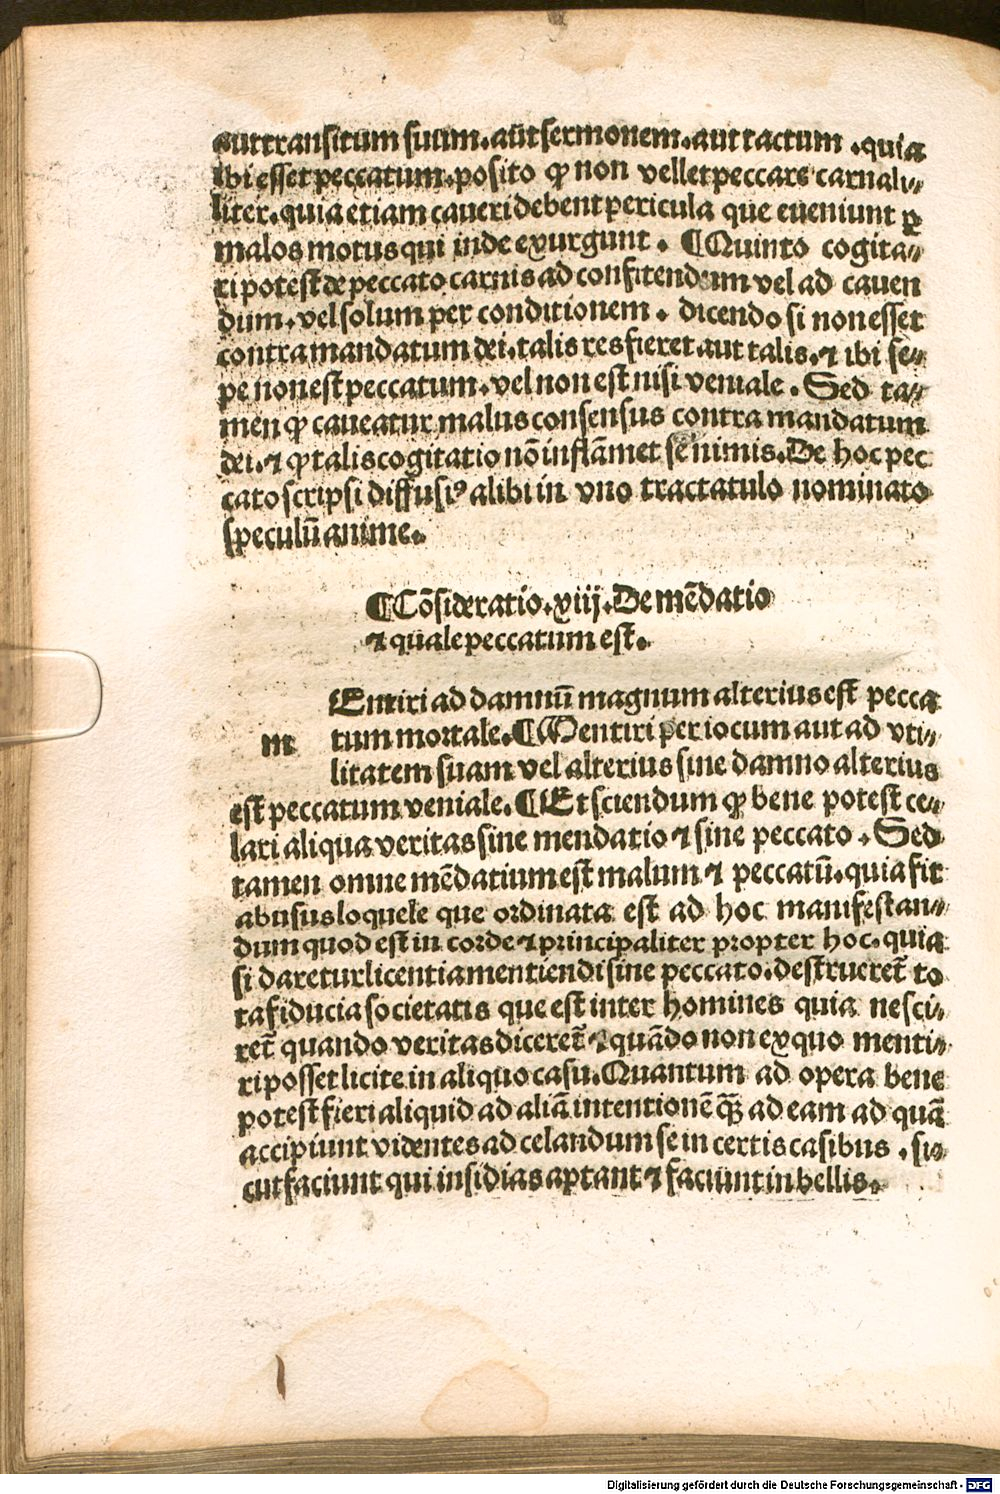 aut transitum suum. aut sermonem. aut tactum . quia
ibi esset peccatum. posito ꝙ non vellet peccare carnali⸗
liter. quia etiam caueri debent pericula que eueniunt ꝑ
malos motus qui inde exurgunt . ¶Quinto cogita⸗
ri potest de peccato carnis ad confitendum vel ad cauen
dum. vel solum per conditionem . dicendo si non esset
contra mandatum dei. talis res fieret aut talis. ⁊ ibi se⸗
pe non est peccatum. vel non est nisi veniale . Sed ta⸗
men ꝙ caueatur malus consensus contra mandatum
dei. ⁊ ꝙ talis cogitatio nō inflāmet se nimis. De hoc pec
cato scripsi diffusiꝰ alibi in vno tractatulo nominato
speculū anime.
¶Cōsideratio. xiij. De mēdatio
⁊ quale peccatum est.
Entiri ad damnū magnum alterius est pecca
m tum mortale. ¶Mentiri per iocum aut ad vti⸗
litatem suam vel alterius sine damno alterius
est peccatum veniale. ¶Et sciendum ꝙ bene potest ce⸗
lari aliqua veritas sine mendatio ⁊ sine peccato . Sed
tamen omne mēdatium est malum ⁊ peccatū. quia fit
abusus loquele que ordinata est ad hoc manifestan⸗
dum quod est in corde ⁊ principaliter propter hoc. quia
si daretur licentia mentiendi sine peccato. destrueret̄ to
ta fiducia societatis que est inter homines quia nesci⸗
ret̄ quando veritas diceret̄ ⁊ quādo non ex quo menti⸗
ri posset licite in aliquo casu. Quantum ad opera bene
potest fieri aliquid ad aliā intentionē ꝙ̄ ad eam ad quā
accipiunt videntes ad celandum se in certis casibus . si⸗
cut faciunt qui insidias aptant ⁊ faciunt in bellis.
Digitalisierung gefördert durch die Deutsche Forschungsgemeinschaft - DFG